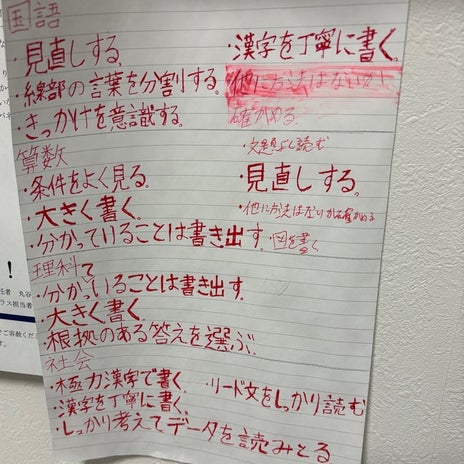 国語
・見直しする。
・線部の言葉を分割する。
・きっかけを意識する。
・漢字を丁寧に書く。
他に方法はないか
確かめる。
算数
・条件をよく見る。
・大きく書く。
・分かっていることは書き出す。
・図を書く
・文題よく読む
・見直しする。
・他に方法はないか確かめる
理科
・分かっていることは書き出す。
・大きく書く。
・根拠のある答えを選ぶ。
社会
・極力漢字で書く。
・漢字を丁寧に書く。
・しっかり考えてデータを読みとる
・リード文をしっかり読む
！
任者 丸谷
ラス担当者